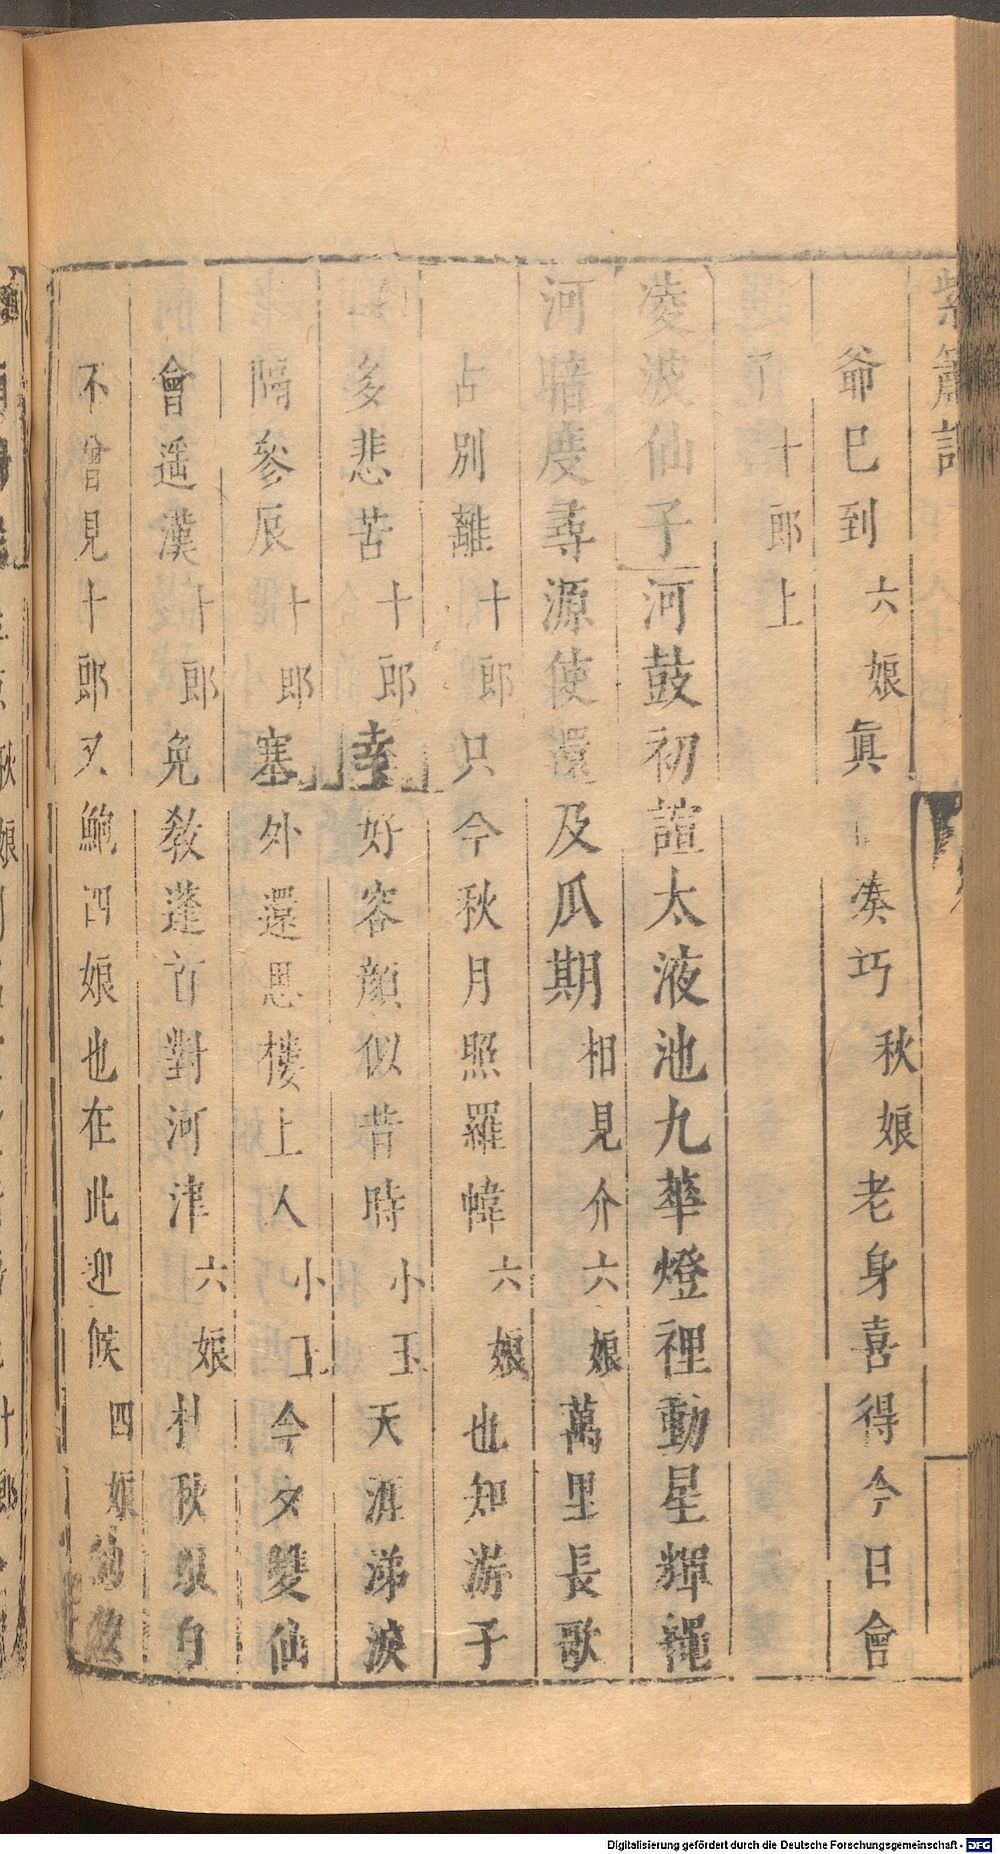 紫簫記
爺已到六娘眞湊巧秋娘老身喜得今日會
了十郎上
凌波仙子河鼓初諠太液池九華燈裡動星輝禯
河暗度尋源使還及瓜期相見介六娘萬里長歌
占別離十郎只今秋月照羅幃六娘也知游子
多悲苦十郎幸好容顏似昔時小玉天涯涕淚
隔參辰十郎塞外還思樓上人小玉今夕雙仙
會遥漢十郎免教蓬首對河津六娘杜秋娘自
不曾見十郎又鮑四娘也在此迎候四娘
Digitalisierung gefördert durch die Deutsche Forschungsgemeinschaft - DFG